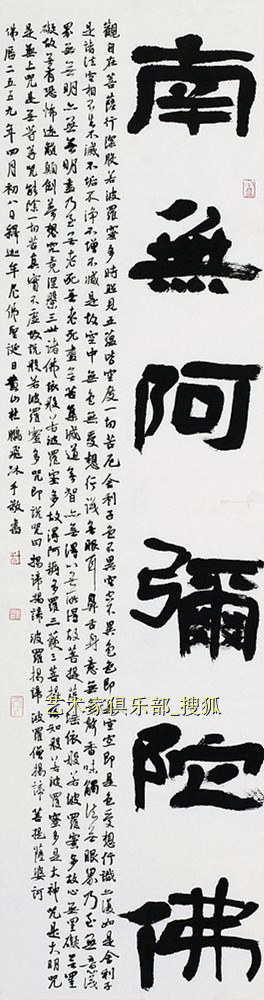 南無阿彌陀佛
觀自在菩薩行深般若波羅蜜多時照見五蘊皆空度一切苦厄舍利子色不異空空不異色色即是空空即是色受想行識亦復如是舍利子
是諸法空相不生不滅不垢不淨不增不減是故空中無色無受想行識無眼耳鼻舌身意無色聲香味觸法無眼界乃至無意識
界無無明亦無無明盡乃至無老死亦無老死盡無苦集滅道無智亦無得以無所得故菩提薩埵依般若波羅蜜多故心無罣礙無罣
礙故無有恐怖遠離顛倒夢想究竟涅槃三世諸佛依般若波羅蜜多故得阿耨多羅三藐三菩提故知般若波羅蜜多是大神咒是大明咒
是無上咒是無等等咒能除一切苦真實不虛故說般若波羅蜜多咒即說咒曰揭諦揭諦波羅揭諦波羅僧揭諦菩提薩婆訶
佛曆二五五九年四月初八日釋迦牟尼佛聖誕日黄山杜鵬飛沐手敬書
艺术家俱乐部_搜狐